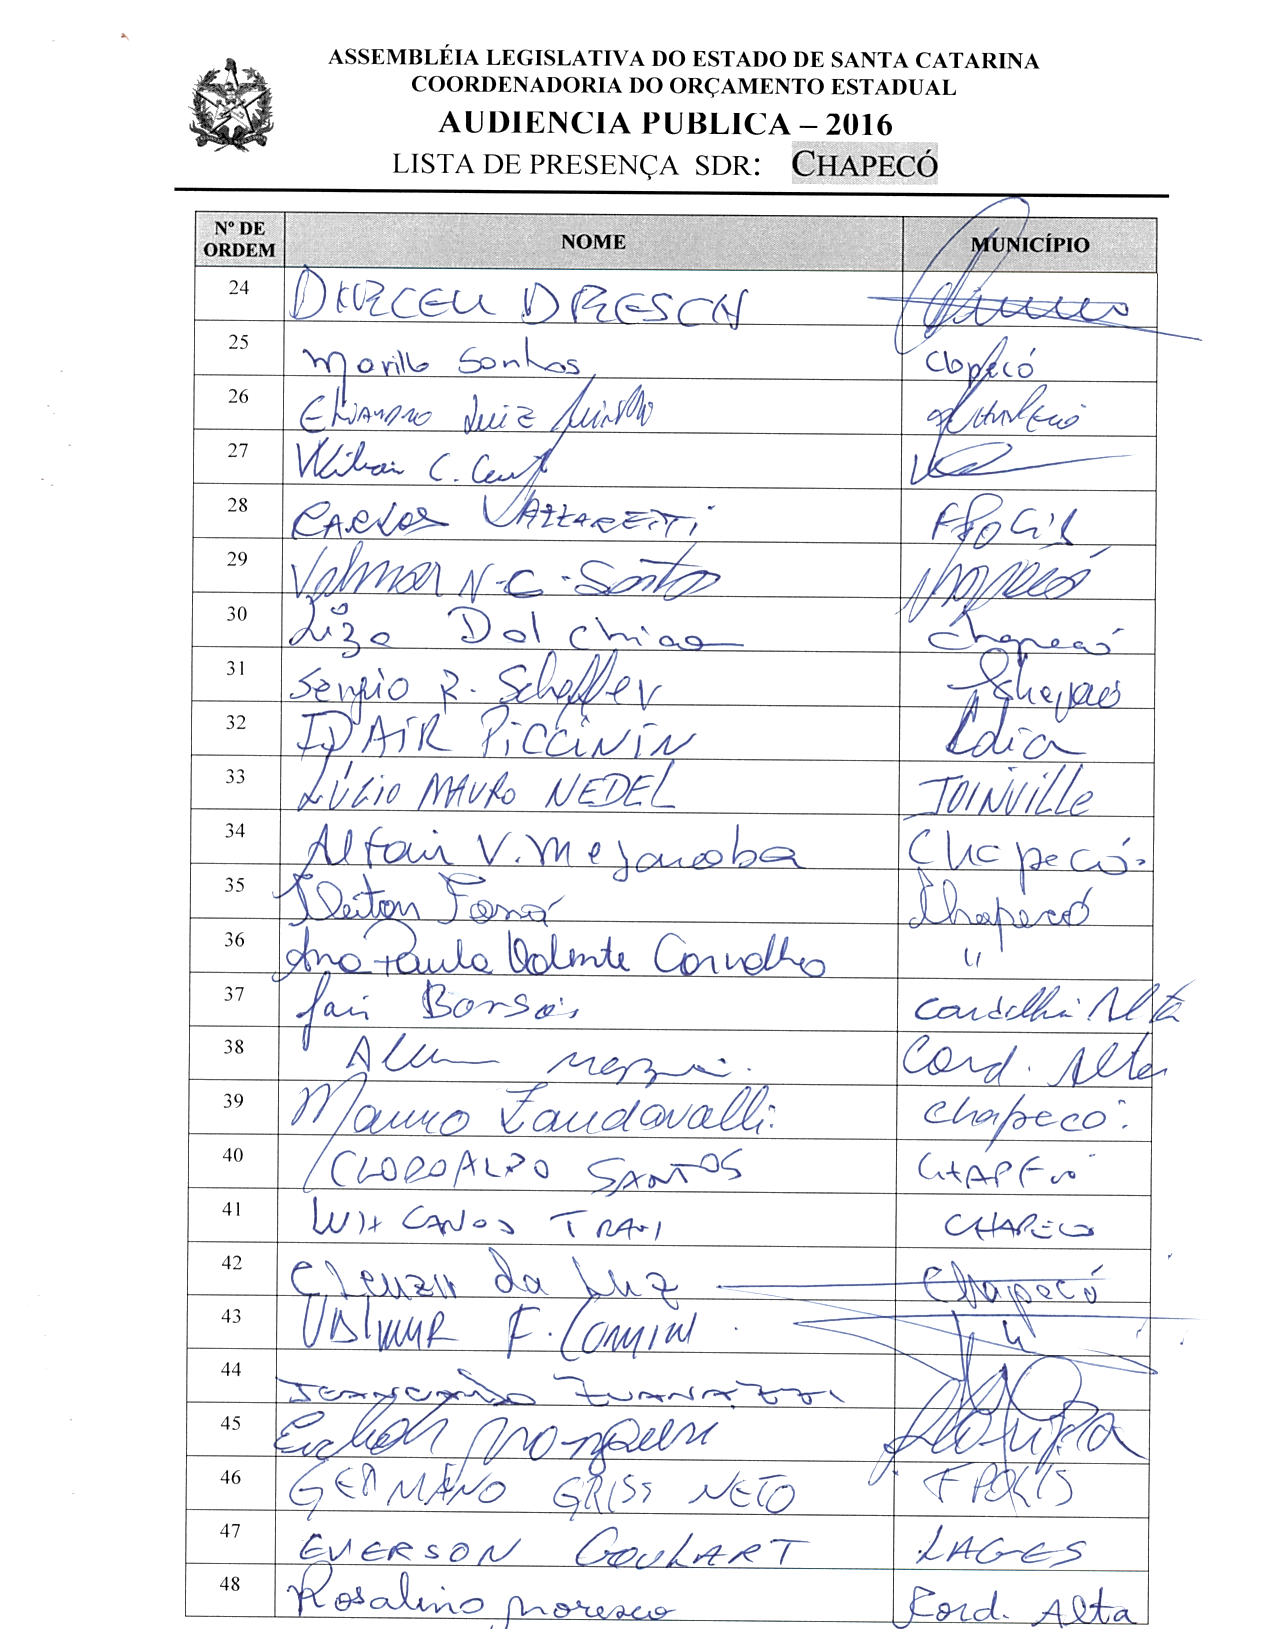 ASSEMBLÉIA LEGISLATIVA DO ESTADO DE SANTA CATARINA
COORDENADORIA DO ORÇAMENTO ESTADUAL
AUDIENCIA PUBLICA – 2016
LISTA DE PRESENÇA SDR: CHAPECÓ
Nº DE ORDEM NOME MUNICÍPIO
24 DIRCEU DRESCH
25 Chapecó
26 Luiz
27 C.
28 CARLOS FPOLIS
29 Valmar N.C. Santos Chapecó
30 Dal Chapecó
31 Sergio R. Scheffer
32 IDAIR PICCININ
33 LÚCIO MAURO NEDEL JOINVILLE
34 Altair V. Chapecó
35 Chapecó
36 Ana Paula Valente Carvalho "
37 Jair Alta
38 Cord. Alta
39 Mauro Zandavalli Chapecó
40 CLODOALDO SANTOS CHAPECÓ
41 LUIZ CARLOS CHAPECO
42 da Luz Chapecó
43 VALMIR F. COMIN "
44 ZUANAZZI
45
46 GERMANO GRISS NETO FPOLIS
47 EVERSON GOULART LAGES
48 Rosalino Moresco Cord. Alta